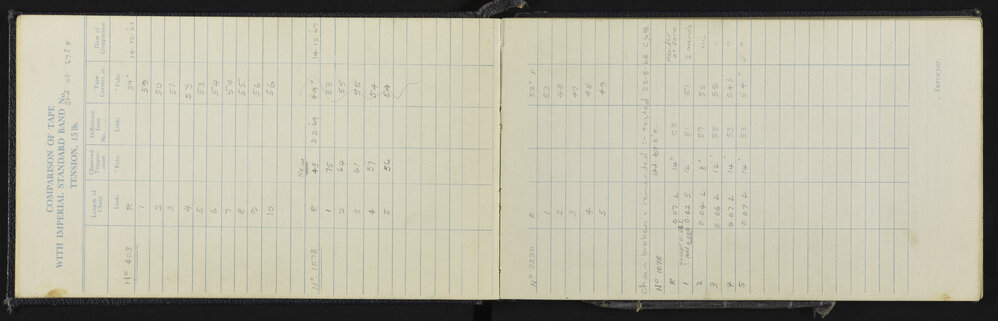 COMPARISON OF TAPE
WITH IMPERIAL STANDARD BAND No. at 67.5 F
TENSION, 15 lb.
Length of Chain Observed Temperature Difference from No. Tape Correct at Date of Comparison
Links °Fahr. Links °Fahr.
No 483 R 39° 14.12.67
1 59
2 50
3 51
4 53
5 53
6 54
7 54
8 55
9 56
10 56
New
No 1078 R 49 3.2.69 49° 14.12.67
1 75 53
2 64 55
3 61 55
4 57 54
5 56 54
No 3230 R 53° F
1 53
2 48
3 47
4 48
5 49
Chain broken & remended & re-tested 23.8.68
No 1078 at 67½°
R 0.07 L 14° 53
1 0.42 S 16 51 51 2 mends
2 0.04 L 8° 59 55 Nil
3 0.06 L 12° 55 55
4 0.07 L 14° 53 54½
5 0.07 L 14° 53 54
, Surveyor.